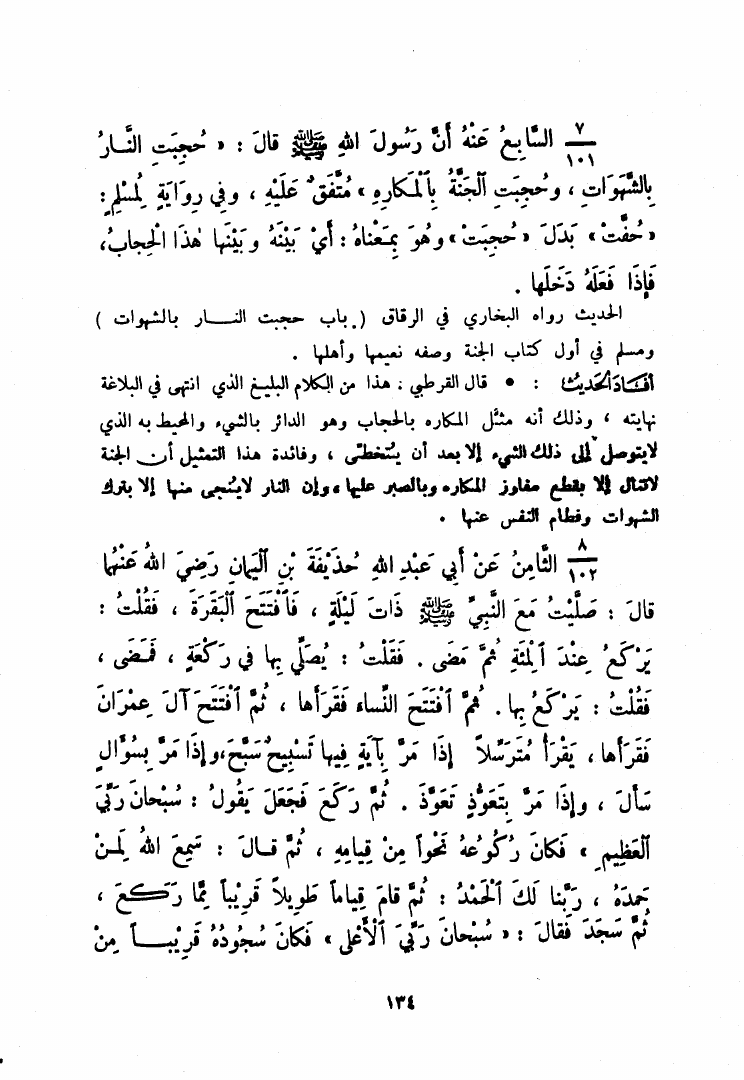 ٧/١٠١ السَّابِعُ عَنْهُ أَنَّ رَسُولَ اللهِ ﷺ قالَ : « حُجِبَتِ النَّـارُ
بِالشَّهَوَاتِ ، وحُجِبَتِ ٱلْجَنَّةُ بِٱلْمَكارِهِ » مُتَّفَقٌ عَلَيْهِ ، وفي رِوايَةٍ لِمُسْلِمٍ :
« حُفَّتْ » بَدَلَ « حُجِبَتْ » وهُوَ بِمَعْناهُ : أَيْ بَيْنَهُ وبَيْنَها هٰذَا الْحِجابُ،
فَإِذَا فَعَلَهُ دَخَلَها .
الحديث رواه البخاري في الرقاق ( باب حجبت النـــار بالشهوات )
ومسلم في أول كتاب الجنة وصفه نعيمها وأهلها .
أفَـادَ الْحَديثُ : • قال القرطبي : هذا من الكلام البليغ الذي انتهى في البلاغة
نهايته ، وذلك أنه مثَّل المكاره بالحجاب وهو الدائر بالشيء والمحيط به الذي
لايتوصل إلى ذلك الشيء إلا بعد أن يتخطى ، وفائدة هذا التمثيل أن الجنة
لاتنال إلا بقطع مفاوز المكاره وبالصبر عليها ، وإن النار لايُنجى منها إلا بترك
الشهوات وفطام النفس عنها .
٨/١٠٢ الثَّامِنُ عَنْ أَبي عَبْدِ اللهِ حُذَيْفَةَ بْنِ ٱلْيَمانِ رَضِيَ اللهُ عَنْهُما
قالَ : صَلَّيْتُ مَعَ النَّبِيِّ ﷺ ذَاتَ لَيْلَةٍ ، فَٱفْتَتَحَ ٱلْبَقَرَةَ ، فَقُلْتُ :
يَرْكَعُ عِنْدَ ٱلْمِئَةِ ثُمَّ مَضَى . فَقُلْتُ : يُصَلِّي بِها في رَكْعَةٍ ، فَمَضَى ،
فَقُلْتُ : يَرْكَعُ بِها . ثُمَّ ٱفْتَتَحَ النِّساء فَقَرَأَها ، ثُمَّ ٱفْتَتَحَ آلَ عِمْرَانَ
فَقَرَأَها ، يَقْرَأُ مُتَرَسِّلاً إِذَا مَرَّ بِآيَةٍ فِيها تَسْبِيحٌ سَبَّحَ،وإِذَا مَرَّ بِسُؤَالٍ
سَأَلَ ، وإِذَا مَرَّ بِتَعَوُّذٍ تَعَوَّذَ . ثُمَّ رَكَعَ فَجَعَلَ يَقُولُ : سُبْحانَ رَبِّيَ
ٱلْعَظِيمِ » فَكانَ رُكُوعُهُ نَحْواً مِنْ قِيامِهِ ، ثُمَّ قـالَ : سَمِعَ اللهُ لِمَـنْ
حَمِدَهُ ، رَبَّنا لَكَ ٱلْحَمْدُ : ثُمَّ قامَ قِياماً طَوِيلاً قَرِيْباً مِمَّا رَكَـعَ ،
ثُمَّ سَجَدَ فَقالَ : « سُبْحانَ رَبِّيَ ٱلْأَعْلى » فَكانَ سُجُودُهُ قَرِيْبـاً مِنْ
١٣٤